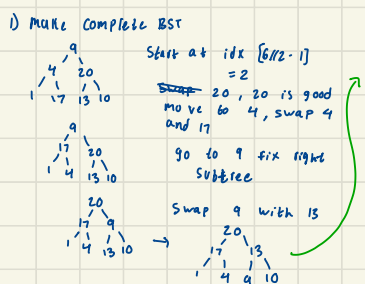 1) Make Complete BST
9
4 20
1 17 13 10
Start at idx [6//2 - 1]
= 2
20, 20 is good
move to 4, swap 4
and 17
9
17 20
1 4 13 10
go to 9 fix right
subtree
20
17 9
1 4 13 10
Swap 9 with 13
20
17 13
1 4 9 10